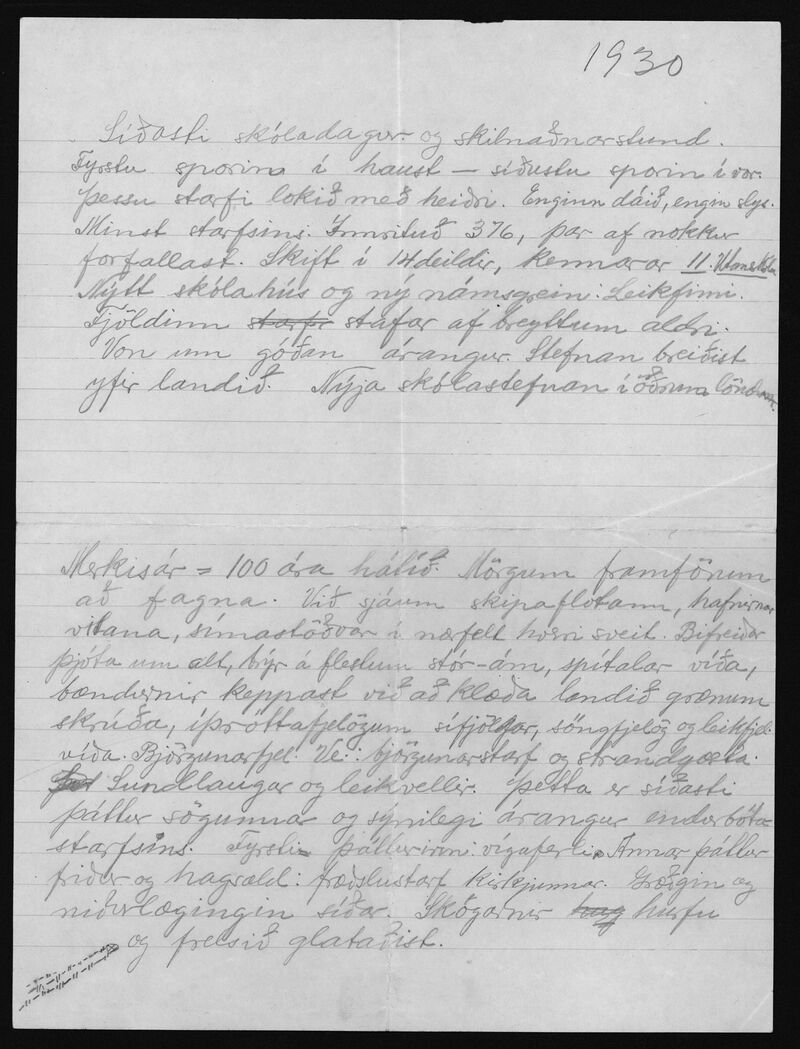 1930
Síðasti skóladagur og skilnaðarstund.
Fyrstu sporin í haust – síðustu sporin í vor.
Þessu starfi lokið með heiðri. Enginn dáið, engin slys.
Minst starfsins. Innrituð 376, þar af nokkur
forfallast. Skift í 14 deildir, kennarar 11.
Nýtt skólahús og ný námsgrein: Leikfimi.
Fjöldinn starfr stafar af breyttum aldri.
Von um góðan árangur. Stefnan breiðist
yfir landið. Nýja skólastefnan í öðrum löndum.
Merkisár = 100 ára hátíð. Mörgum framförum
að fagna. Við sjáum skipaflotann, hafnirnar
vitana, símastöðvar í nærfelt hverri sveit. Bifreiðar
þjóta um alt, brýr á flestum stór-ám, spítalar víða,
bændurnir keppast við að klæða landið grænum
skrúða, íþróttafjelögum sífjölgar, söngfjelög og leikfjel.
víða. Björgunarfjel. Ve.: björgunarstarf og strandgæsta.
Sundlaugar og leikvellir. Þetta er síðasti
þáttur sögunnar og sýnilegi árangur endurbóta
starfsins. Fyrsti þátturinn: vígaferli. Annar þáttur
friður og hagsæld: fræðslustarf kirkjunnar. Græðgin og
niðurlægingin síðar. Skógarnir hurfu
og frelsið glataðist.